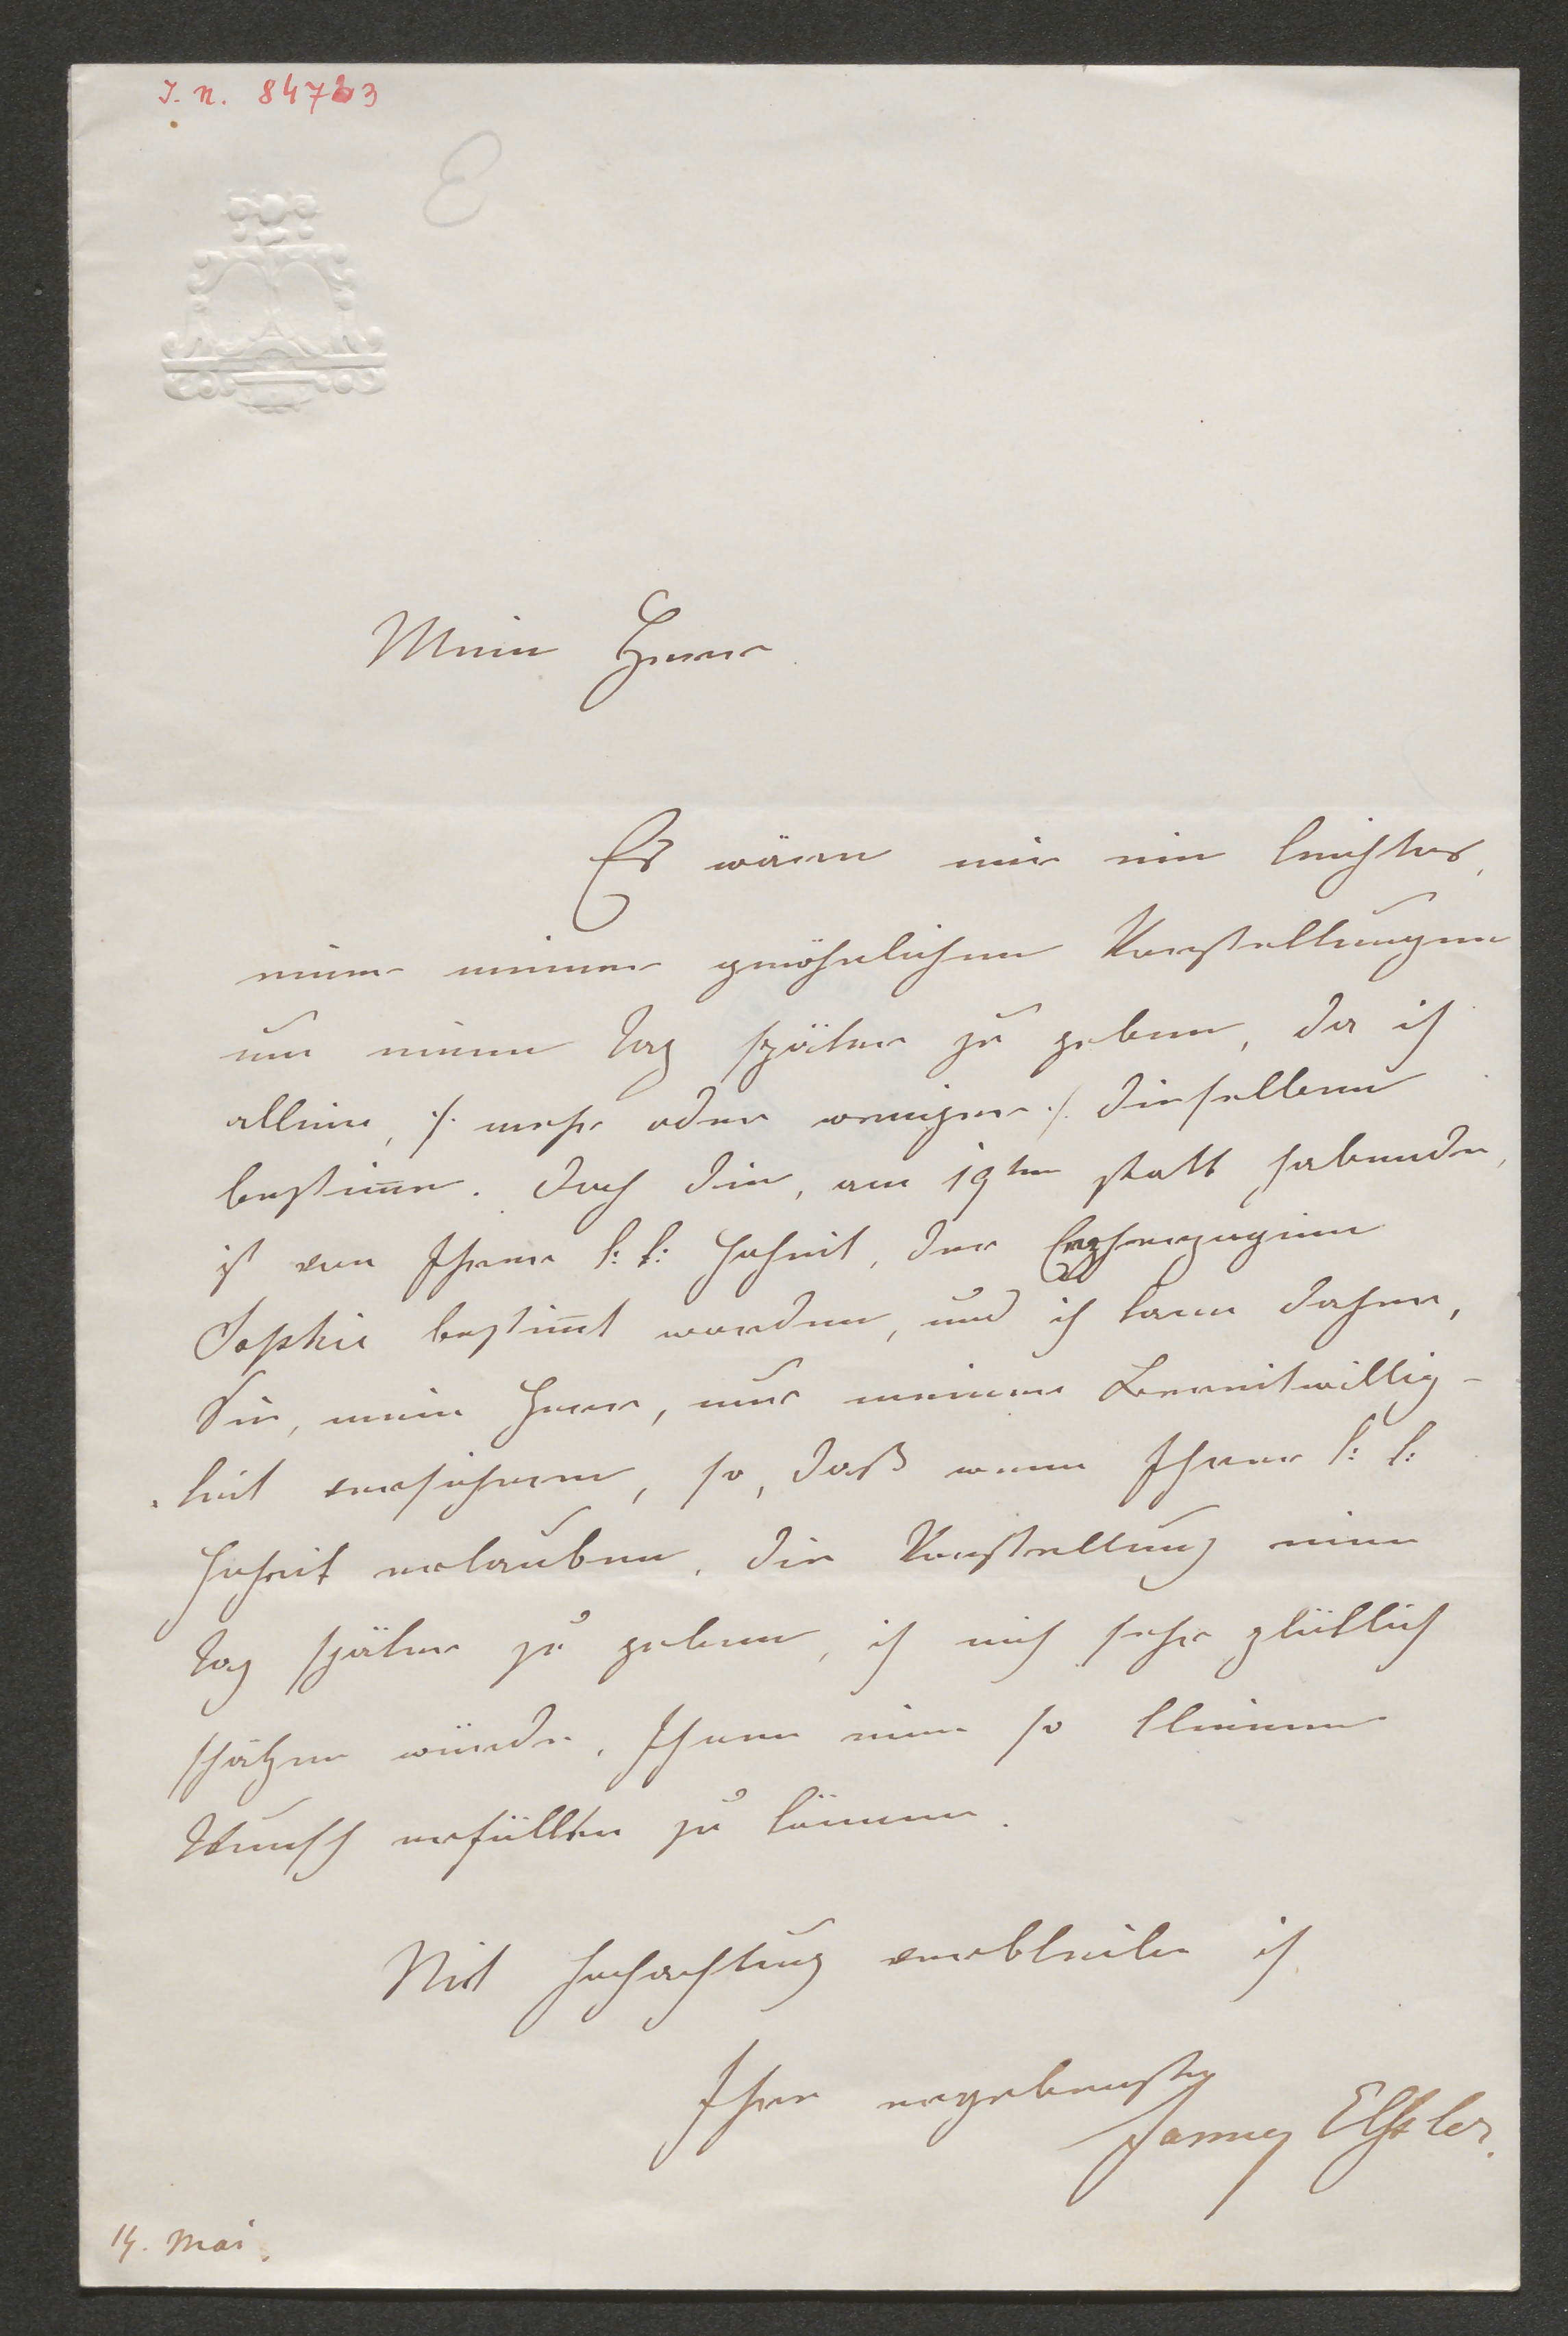 I. N. 84763
E
Mein Herr
Es wäre mir ein leichtes,
eine meiner gewöhnlichen Vorstellungen
um einen Tag später zu geben, da ich
allein, /: mehr oder weniger :/ dieselben
bestim̅e. Doch die, am 19ten statt habende,
ist von Ihrer k: k: Hoheit, der Erzherzoginn
Sophie bestim̅t worden, und ich kann daher,
Sie, mein Herr, nur meiner Bereitwillig-
keit versichern, so, daß wenn Ihre k: k:
Hoheit erlauben, die Vorstellung einen
Tag später zu geben, ich mich sehr glüklich
schätzen würde, Ihnen einen so kleinen
Wunsch erfüllen zu können.
Mit Hochachtung verbleibe ich
Ihre ergebenste
Fanny Elßler.
14. Mai.